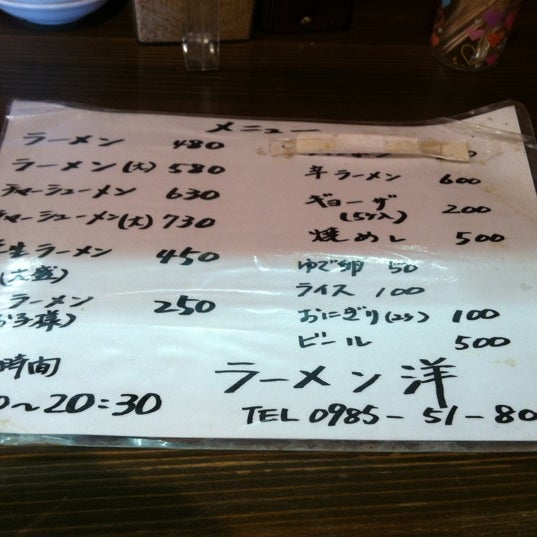 メニュー
ラーメン 480
ラーメン(大) 580
チャーシューメン 630
チャーシューメン(大) 730
生ラーメン 450
(大盛)
ラーメン 250
お子様)
時間
0〜20:30
0
辛ラーメン 600
ギョーザ 200
(5ケ入)
焼めし 500
ゆで卵 50
ライス 100
おにぎり(2ケ) 100
ビール 500
ラーメン 洋
TEL 0985-51-80